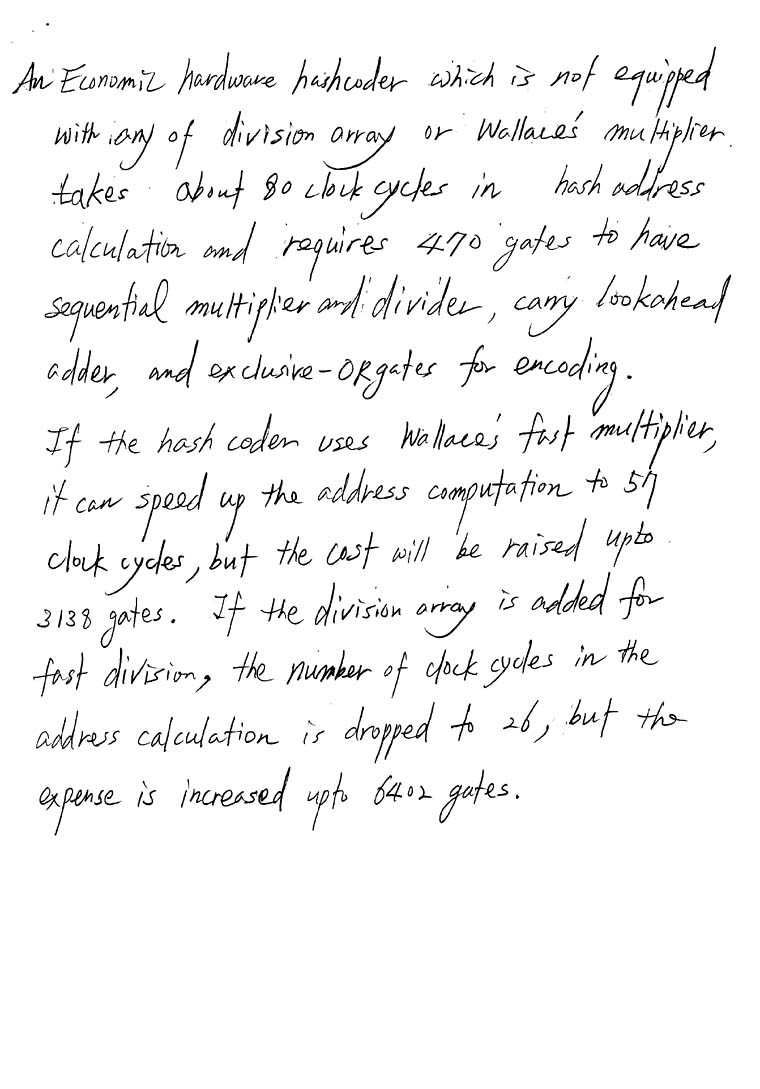 An Economic hardware hashcoder which is not equipped
with any of division array or Wallace's multiplier.
takes about 80 clock cycles in hash address
calculation and requires 470 gates to have
sequential multiplier and divider, carry lookahead
adder, and exclusive-OR gates for encoding.
If the hash coder uses Wallace's fast multiplier,
it can speed up the address computation to 57
clock cycles, but the cost will be raised upto
3138 gates. If the division array is added for
fast division, the number of clock cycles in the
address calculation is dropped to 26, but the
expense is increased upto 6402 gates.